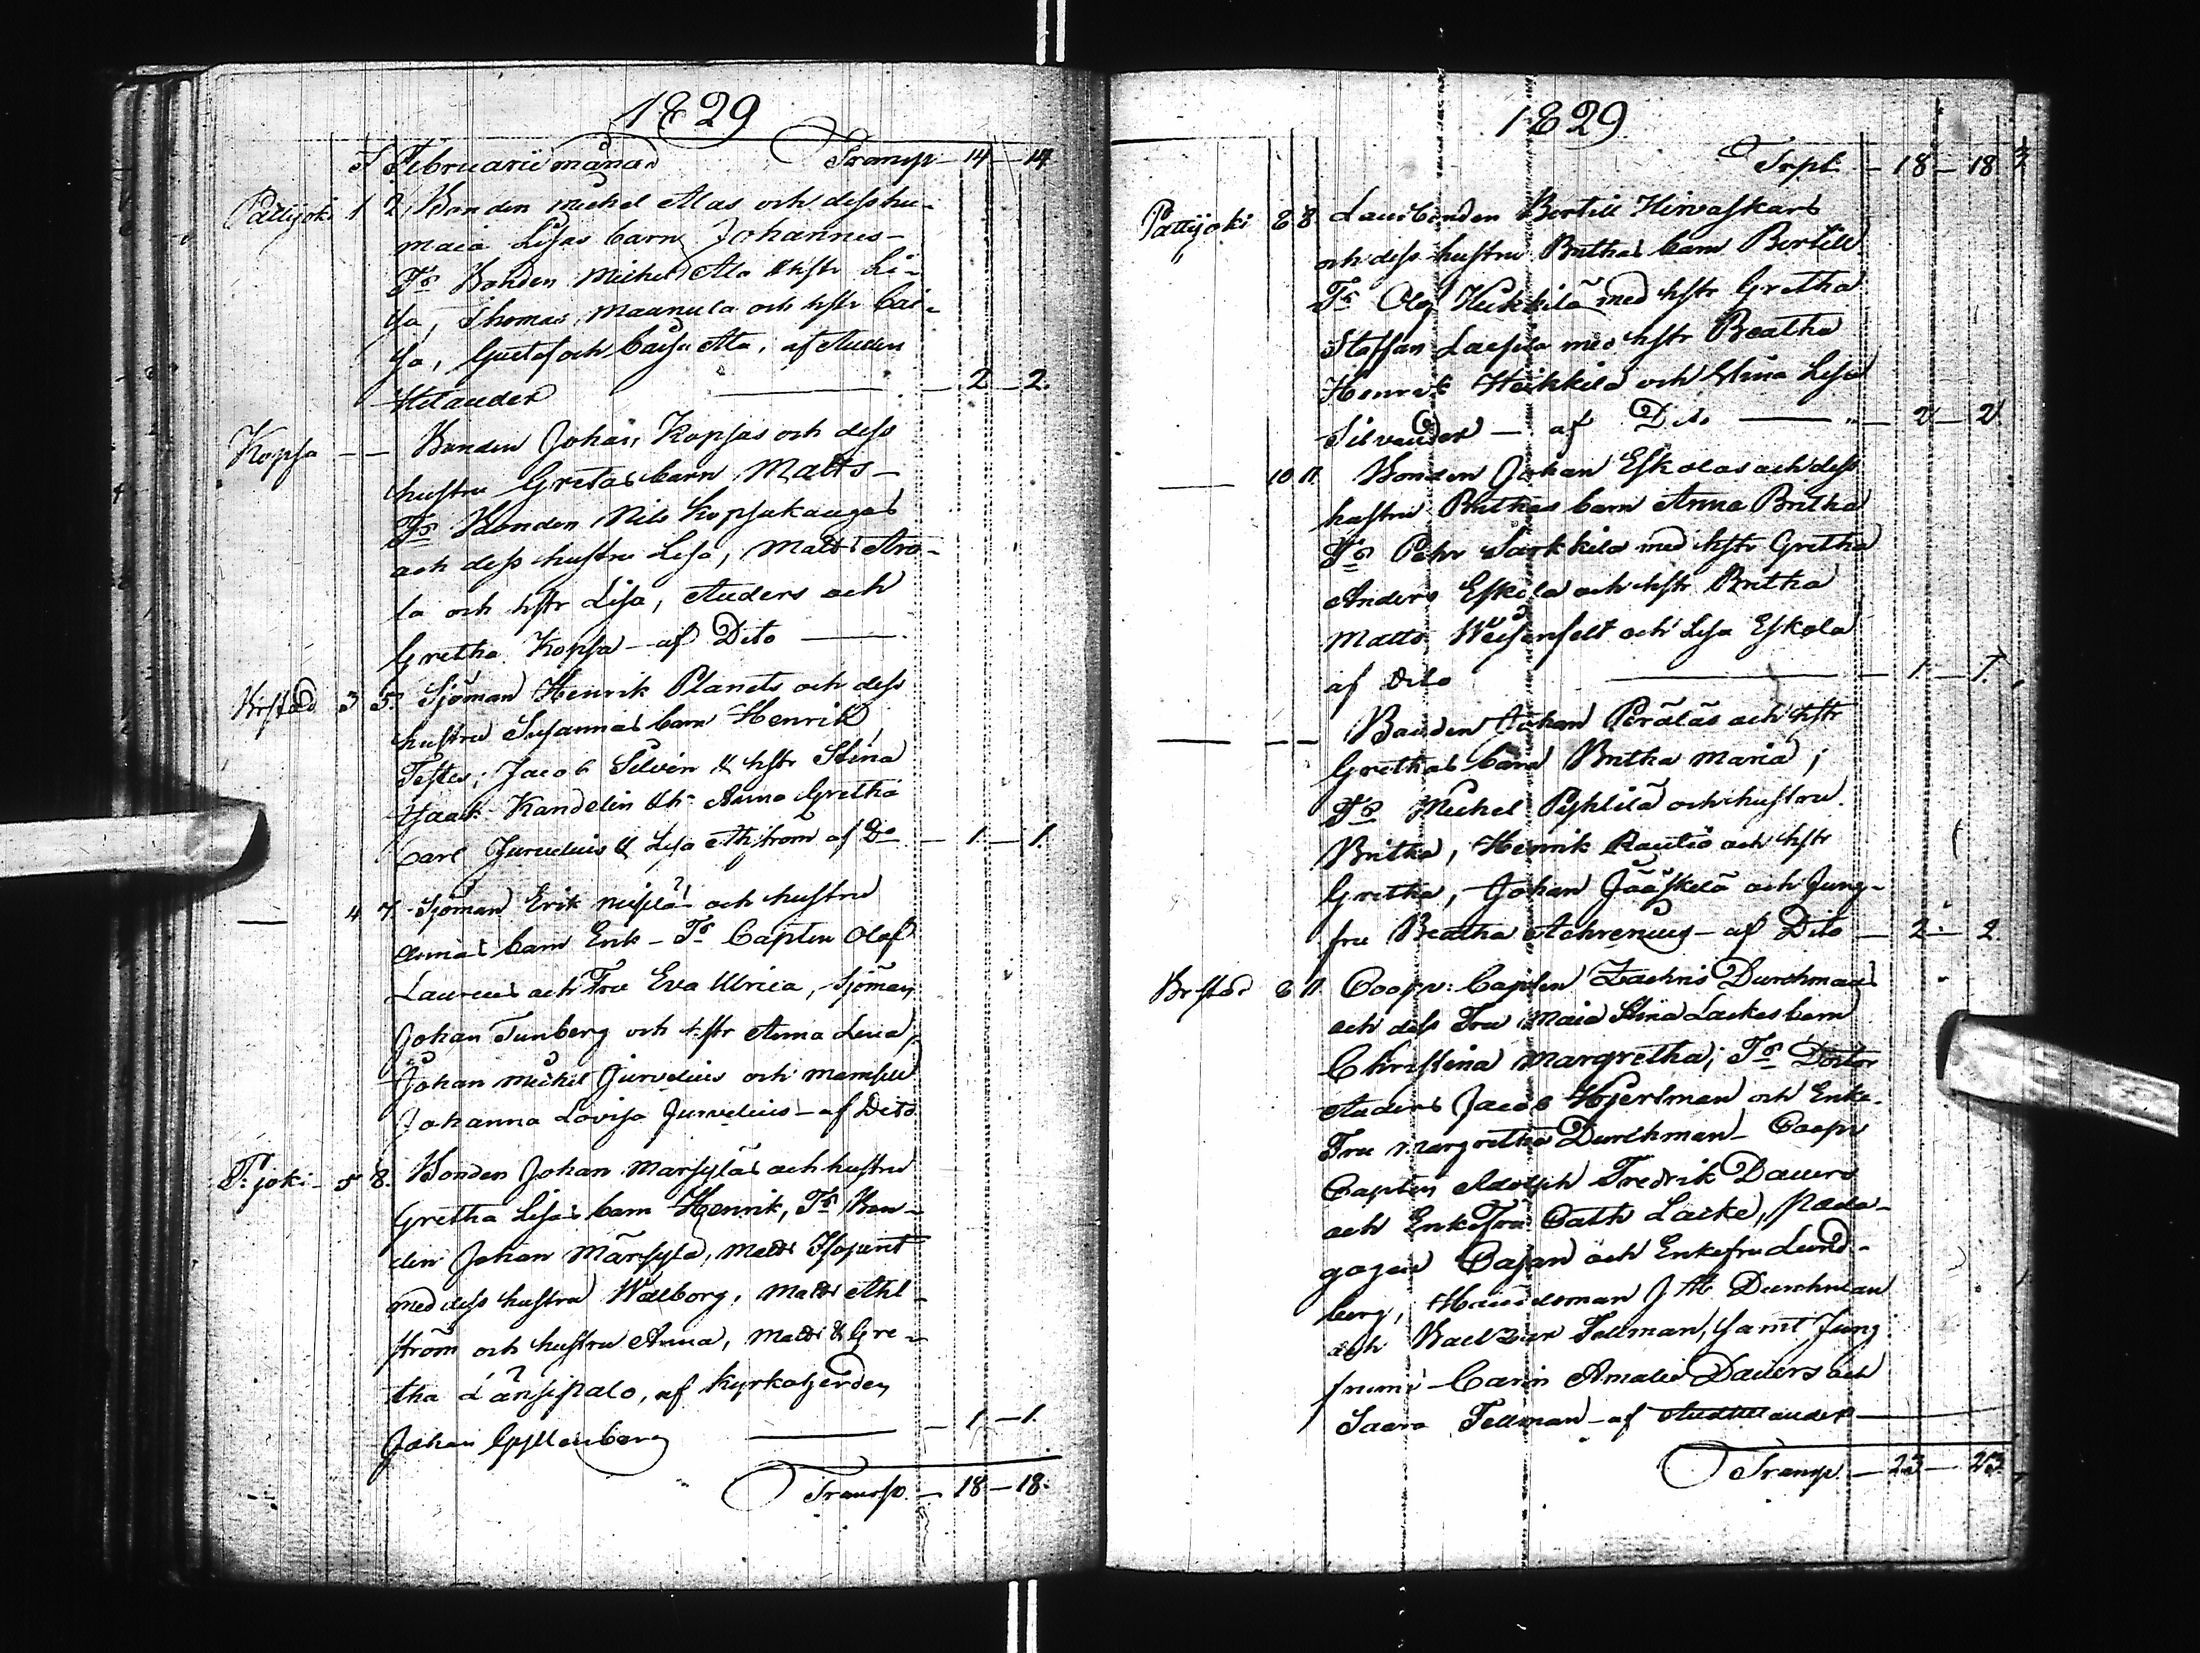 1829
I Februarii månad Transp — 14 — 14
Pattijoki 1 2 Bonden Michel Alas och dess hu-
maia Lisas barn Johannes —
Ts Bonden Michel Ala & hstr Li-
sa, Thomas Maunula och hstr Cai-
sa, Gustaf och Caisa Ala, af Anders
Helander — 2 — 2.
Kopsa — — Bonden Johan Kopsas och dess
hustru Gretas barn Matts —
Ts Bonden Nils Kopsakangas
och dess hustru Lisa, Matts Aro-
la och hstr Lisa, Anders och
Gretha Kopsa — af Dito —
Brstad 3 5. Sjöman Henrik Planets och dess
hustru Susannas barn Henrik,
Testes; Jacob Silvén & hstr Stina
Isaak Kandelin & h. Anna Gretha
Carl Jurvelius & Lisa Ahlstrom af Do — 1 — 1.
— 4 7. Sjöman Erik och hustru
Annas barn Erik — Ts Capten Olof
Laurens och Fru Eva Ulrica, Sjöman
Johan Tunberg och hstr Anna Lena,
Johan Michel Jurvelius och Mamsell
Johanna Lovisa Jurvelius — af Dito.
P. joki — 5 8. Bonden Johan Marsyläs och hustru
Gretha Lisas barn Henrik, Ts Bon-
den Johan Märsylä, Matts
med dess hustru Walborg, Matts Ahl-
ström och hustru Anna, Matts & Gre-
tha Länsipalo, af Kyrkoherden
Johan Gyllenberg — 1 — 1.
Transp. — 18 — 18.
1829
Trpt. — 18 — 18
Pattijoki 6 8 Landbonden Bertill Hirvaskars
och dess hustru Brithas barn Bertill
Ts Olof Heikkilä med hstr Gretha
Staffan med hstr Beatha
Henrik Heikkilä och Stina Lisa
Silvander — af Dito — 2 — 2
— 10 11. Bonden Johan Eskolas och dess
hustru Brithas barn Anna Britha
Ts Pehr Sarkkila med hstr Gretha
Anders Eskola och hstr Britha
Matts Weisenfelt och Lisa Eskola
af Dito — 1. — 1.
— — — Bonden Johan Peräläs och hstr
Grethas barn Britha Maria;
Ts Michel Pyhlilä och hustru
Britha, Henrik Rautio och hstr
Gretha, Johan Jääskelä och Jung-
fru Beatha Achrenius — af Dito — 2. — 2
Brstad 6 11. Coopv: Capten Zachris Durchmans
och dess Fru Maia Stina Lackes barn
Christina Margretha; Ts Doctor
Anders Jacob Hjertman och Enke-
Fru Margretha Durchman — Coopv
Capten Adolph Fredrik Dauers
och Enkefru Cath Lacke, Pæda-
gogen Cajan och Enkefru Lund-
berg, Handelsman J M Durchman
och Tellman, samt Jung
fruna Carin Amalia Dauers och
Saara Tellman — af And Helander —
Transp. — 23 — 23